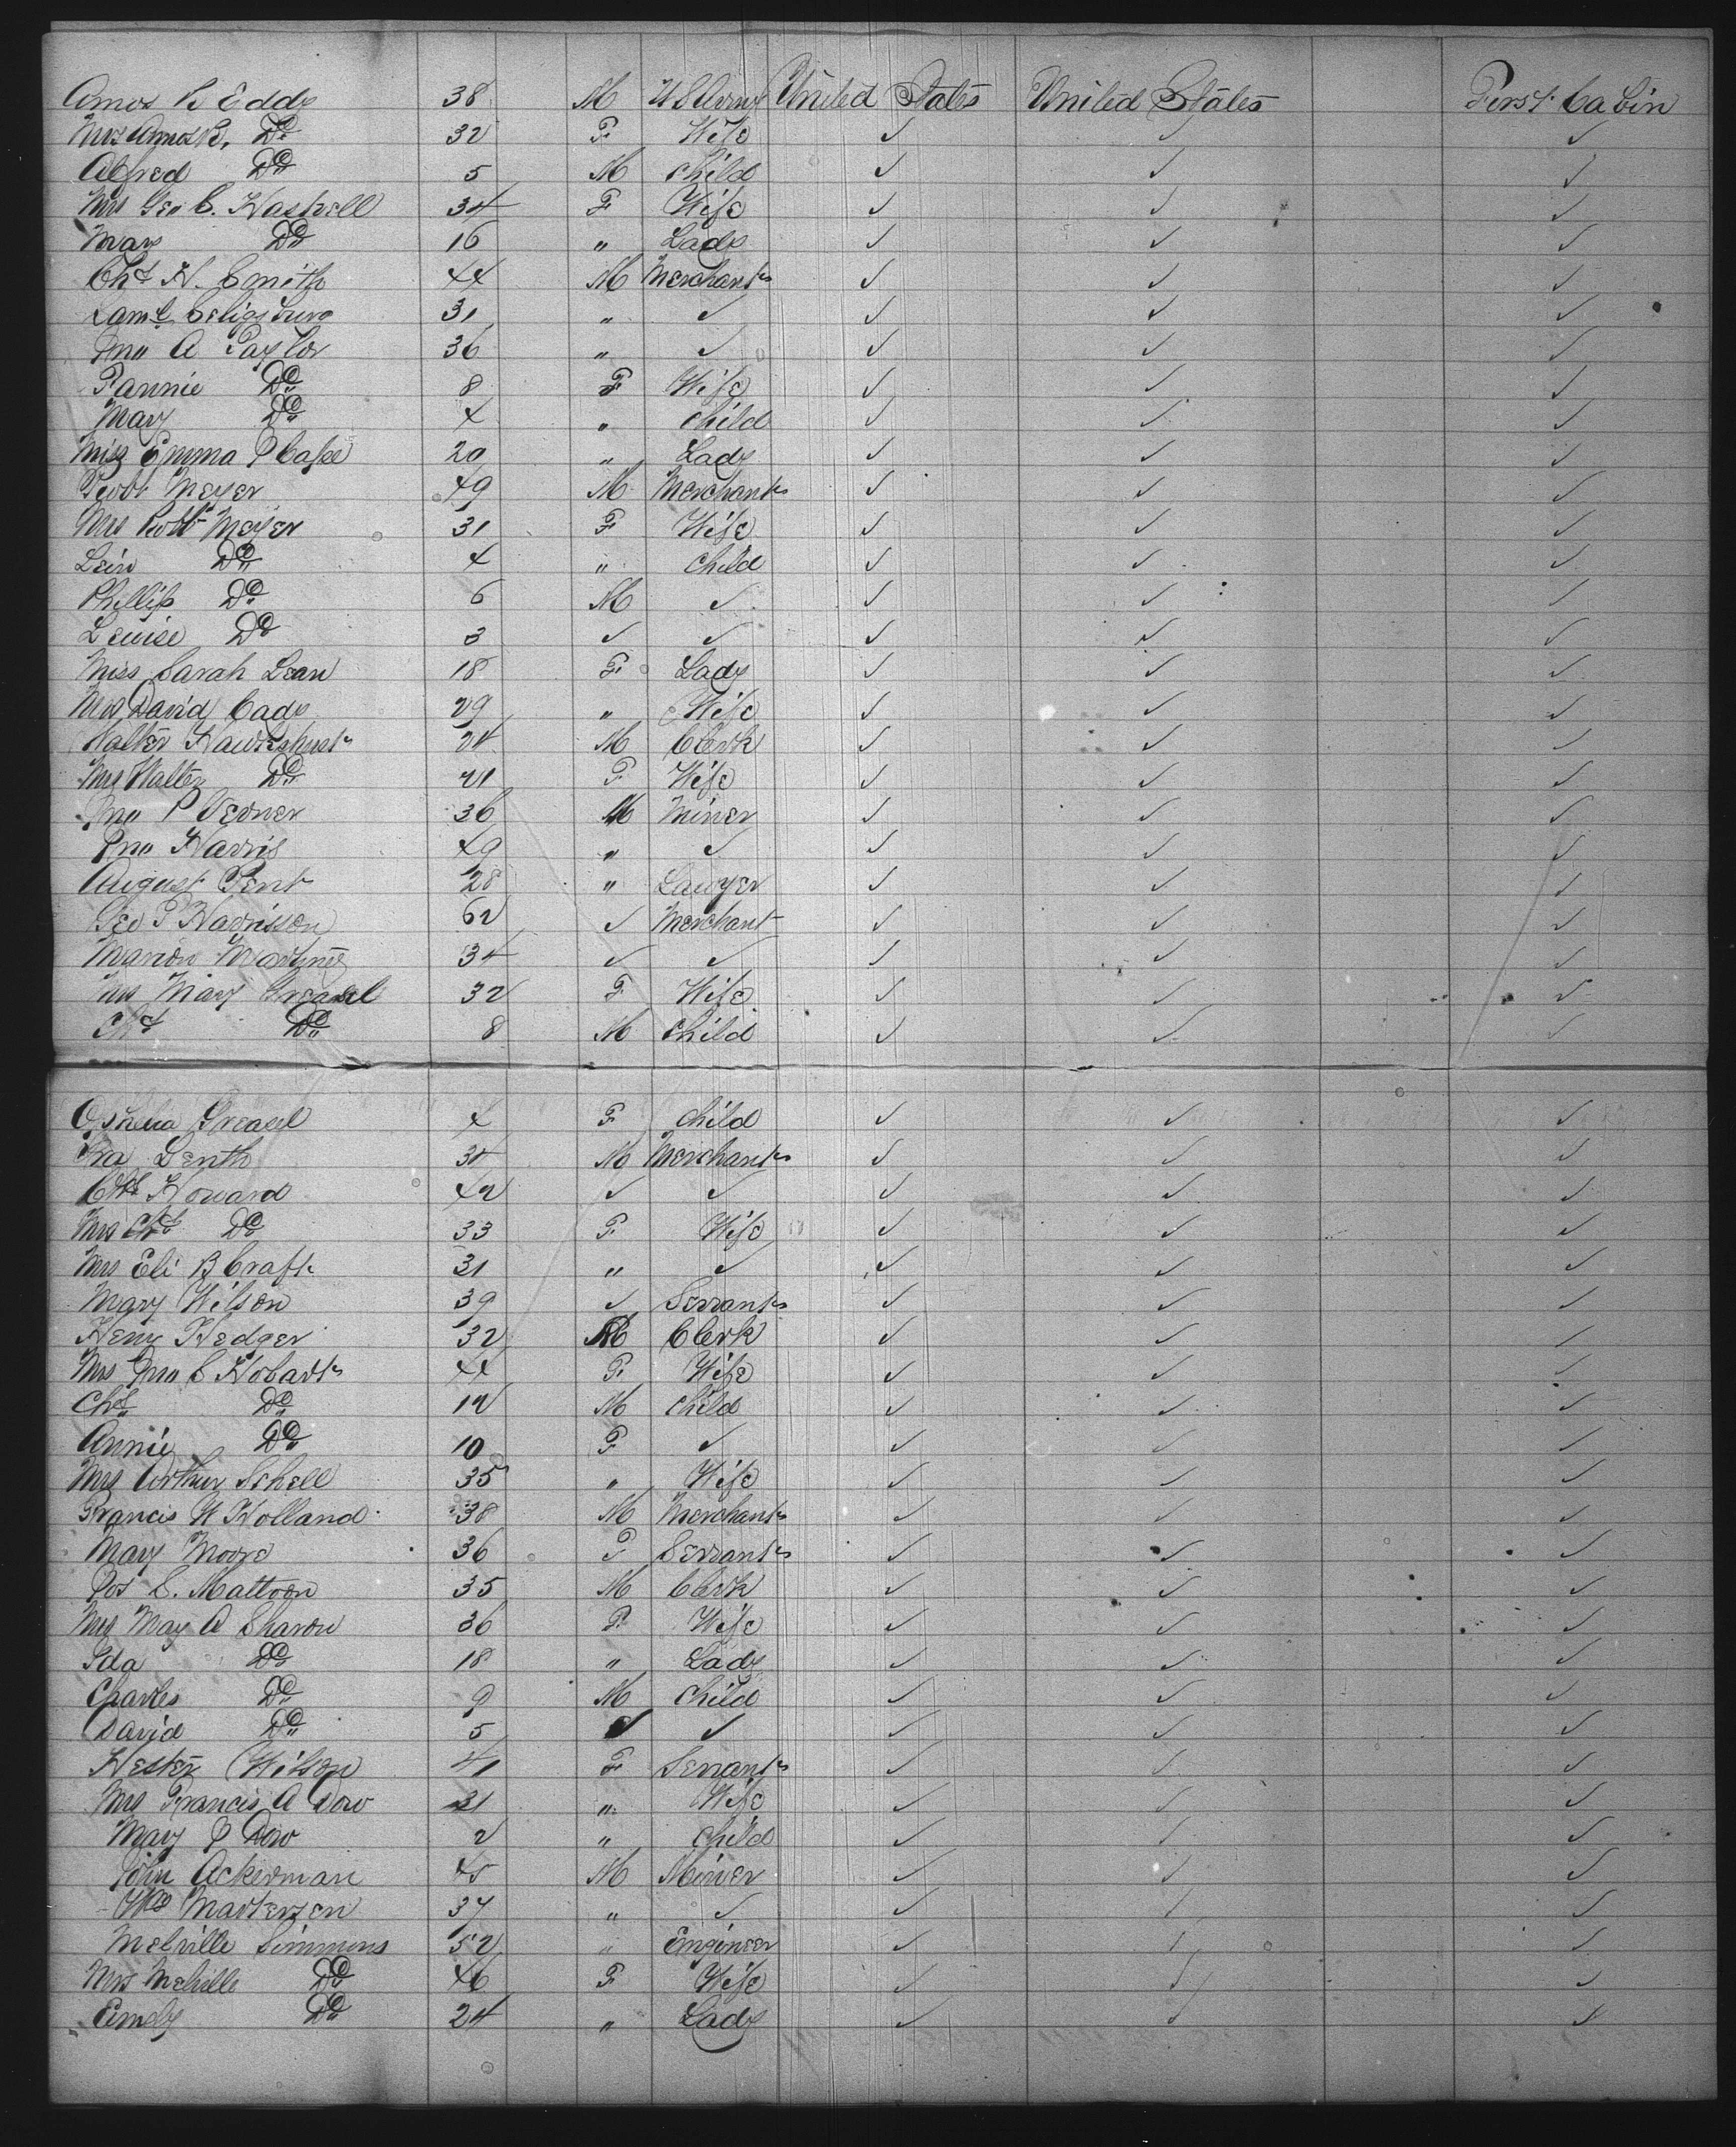 Amos B Eddy 38 M U S Army United States United States First Cabin
Mrs Amos B. Do 32 F Wife ✓ ✓ ✓
Alfred Do 5 M Child ✓ ✓ ✓
Mrs Geo C. Haskell 34 F Wife ✓ ✓ ✓
Mary Do 16 " Lady ✓ ✓ ✓
Chs H. Smith 44 M Merchant ✓ ✓ ✓
Saml Seligsburg 31 " ✓ ✓ ✓ ✓
Jno A Taylor 36 " ✓ ✓ ✓ ✓
Fannie Do 8 F Wife ✓ ✓ ✓
Mary Do 4 " Child ✓ ✓ ✓
Miss Emma P Case 20 " Lady ✓ ✓ ✓
Robt Meyer 49 M Merchant ✓ ✓ ✓
Mrs Robt Meyer 31 F Wife ✓ ✓ ✓
Do 4 " Child ✓ ✓ ✓
Phillip Do 6 M ✓ ✓ ✓ ✓
Lewise Do 3 ✓ ✓ ✓ ✓ ✓
Miss Sarah Lean 18 F Lady ✓ ✓ ✓
Mrs David Cady 29 " Wife ✓ ✓ ✓
Walter Hawkshurst 24 M Clerk ✓ ✓ ✓
Mrs Walter Do 21 F Wife ✓ ✓ ✓
Jno P Verner 36 M Miner ✓ ✓ ✓
Jno Harris 49 " ✓ ✓ ✓ ✓
August Tent 28 " Lawyer ✓ ✓ ✓
Geo P Harrisson 62 ✓ Merchant ✓ ✓ ✓
Marion Martinez 34 ✓ ✓ ✓ ✓ ✓
Mrs Mary Greasel 32 F Wife ✓ ✓ ✓
Chs Do 8 M Child ✓ ✓ ✓
Greasel 4 F Child ✓ ✓ ✓
Ira 34 M Merchant ✓ ✓ ✓
Chs Howard 42 ✓ ✓ ✓ ✓ ✓
Mrs Chs Do 33 F Wife ✓ ✓ ✓
Mrs Eli B Craft 31 " ✓ ✓ ✓ ✓
Mary Wilson 39 ✓ Servant ✓ ✓ ✓
Heny Hedger 32 M Clerk ✓ ✓ ✓
Mrs Jno S Hobart 44 F Wife ✓ ✓ ✓
Chs Do 12 M Child ✓ ✓ ✓
Annie Do 10 F ✓ ✓ ✓ ✓
Mrs Arthur Schell 35 " Wife ✓ ✓ ✓
Francis W Holland 38 M Merchant ✓ ✓ ✓
Mary Moore 36 F Servant ✓ ✓ ✓
Jos S. Mattoon 35 M Clerk ✓ ✓ ✓
Mrs May A Sharon 36 F Wife ✓ ✓ ✓
Ida Do 18 " Lady ✓ ✓ ✓
Charles Do 9 M Child ✓ ✓ ✓
David Do 5 ✓ ✓ ✓ ✓ ✓
Hester Wilson 41 F Servant ✓ ✓ ✓
Mrs Francis A Dow 31 " Wife ✓ ✓ ✓
Mary P Dow 2 " Child ✓ ✓ ✓
John Ackerman 45 M Miner ✓ ✓ ✓
Wm Martensen 37 " ✓ ✓ ✓ ✓
Melville Simmons 52 " Engineer ✓ ✓ ✓
Mrs Melville Do 46 F Wife ✓ ✓ ✓
Emely Do 24 " Lady ✓ ✓ ✓